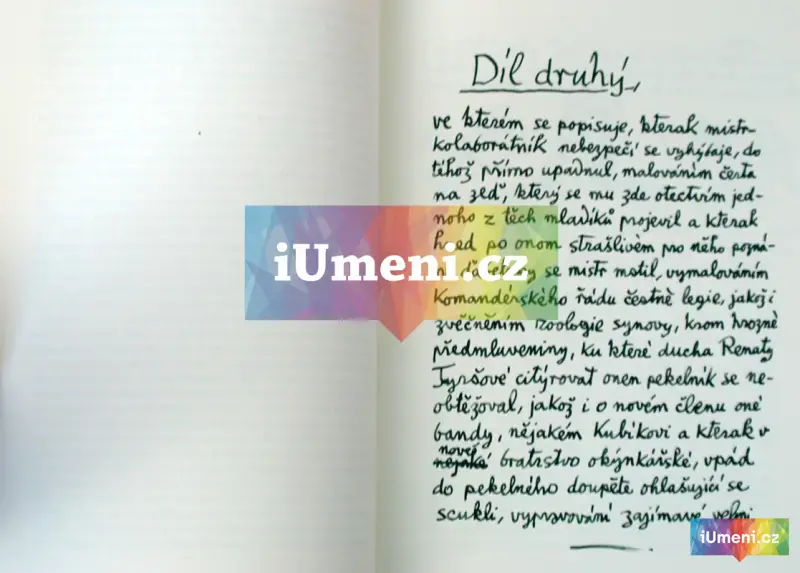 Díl druhý,
ve kterém se popisuje, kterak mistr-
kolaborátník nebezpečí se vyhýbaje, do
téhož přímo upadnul, malováním čerta
na zeď, který se mu zde otectvím jed-
noho z těch mladíků projevil a kterak
hned po onom strašlivém pro něho pozná-
se mistr mstil, vymalováním
Komandérského řádu čestné legie, jakož i
zvěčněním zoologie synovy, krom hrozné
předmluveniny, ku které ducha Renaty
Tyršové citýrovat onen pekelník se ne-
obtěžoval, jakož i o novém členu oné
bandy, nějakém Kubíkovi a kterak v
nové
bratrstvo okýnkářské, vpád
do pekelného doupěte ohlašující se
scukli, vypravování zajímavé velmi
iUmeni.cz
iUmeni.cz